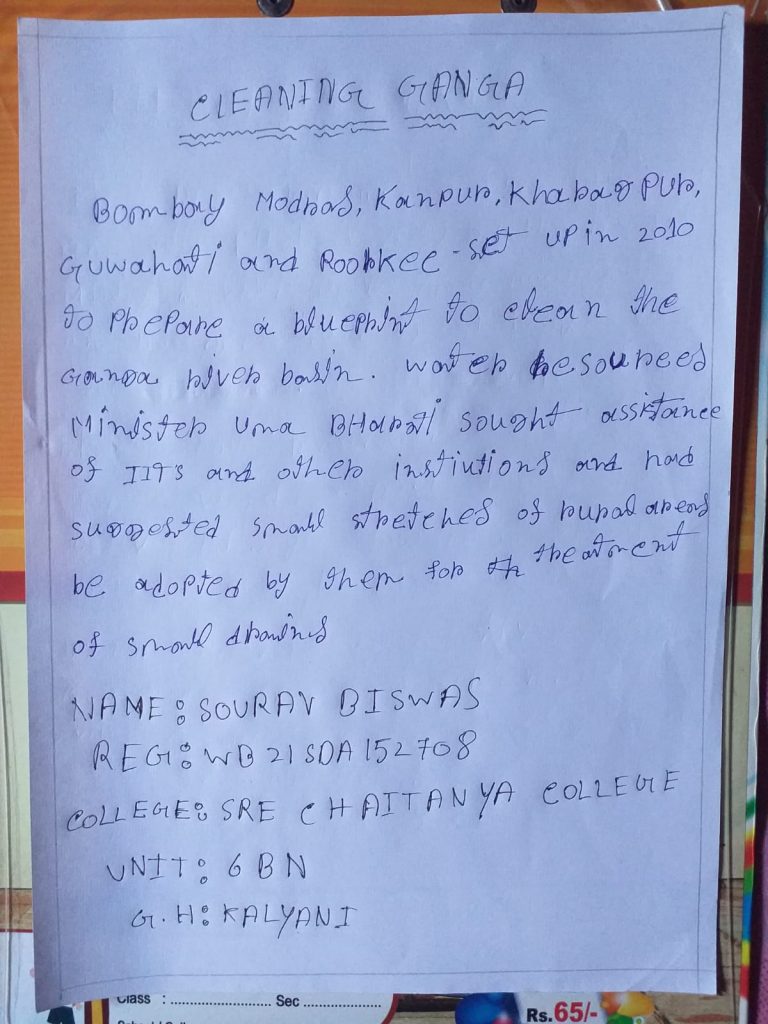 CLEANING GANGA
Boombay Modras, Kanpur, Kharagpur,
Guwahati and Roorkee - set up in 2010
to prepare a blueprint to clean the
Ganga river basin. Water resources
Minister Uma BHarati sought assistance
of IITs and other instiutions and had
suggested small stretches of rural areas
be adopted by them for th treatment
of small drains
NAME: SOURAV BISWAS
REG: WB21SDA152708
COLLEGE: SRE CHAITANYA COLLEGE
UNIT: 6 BN
G.H: KALYANI
Class : ........................... Sec .....................
Rs.65/-